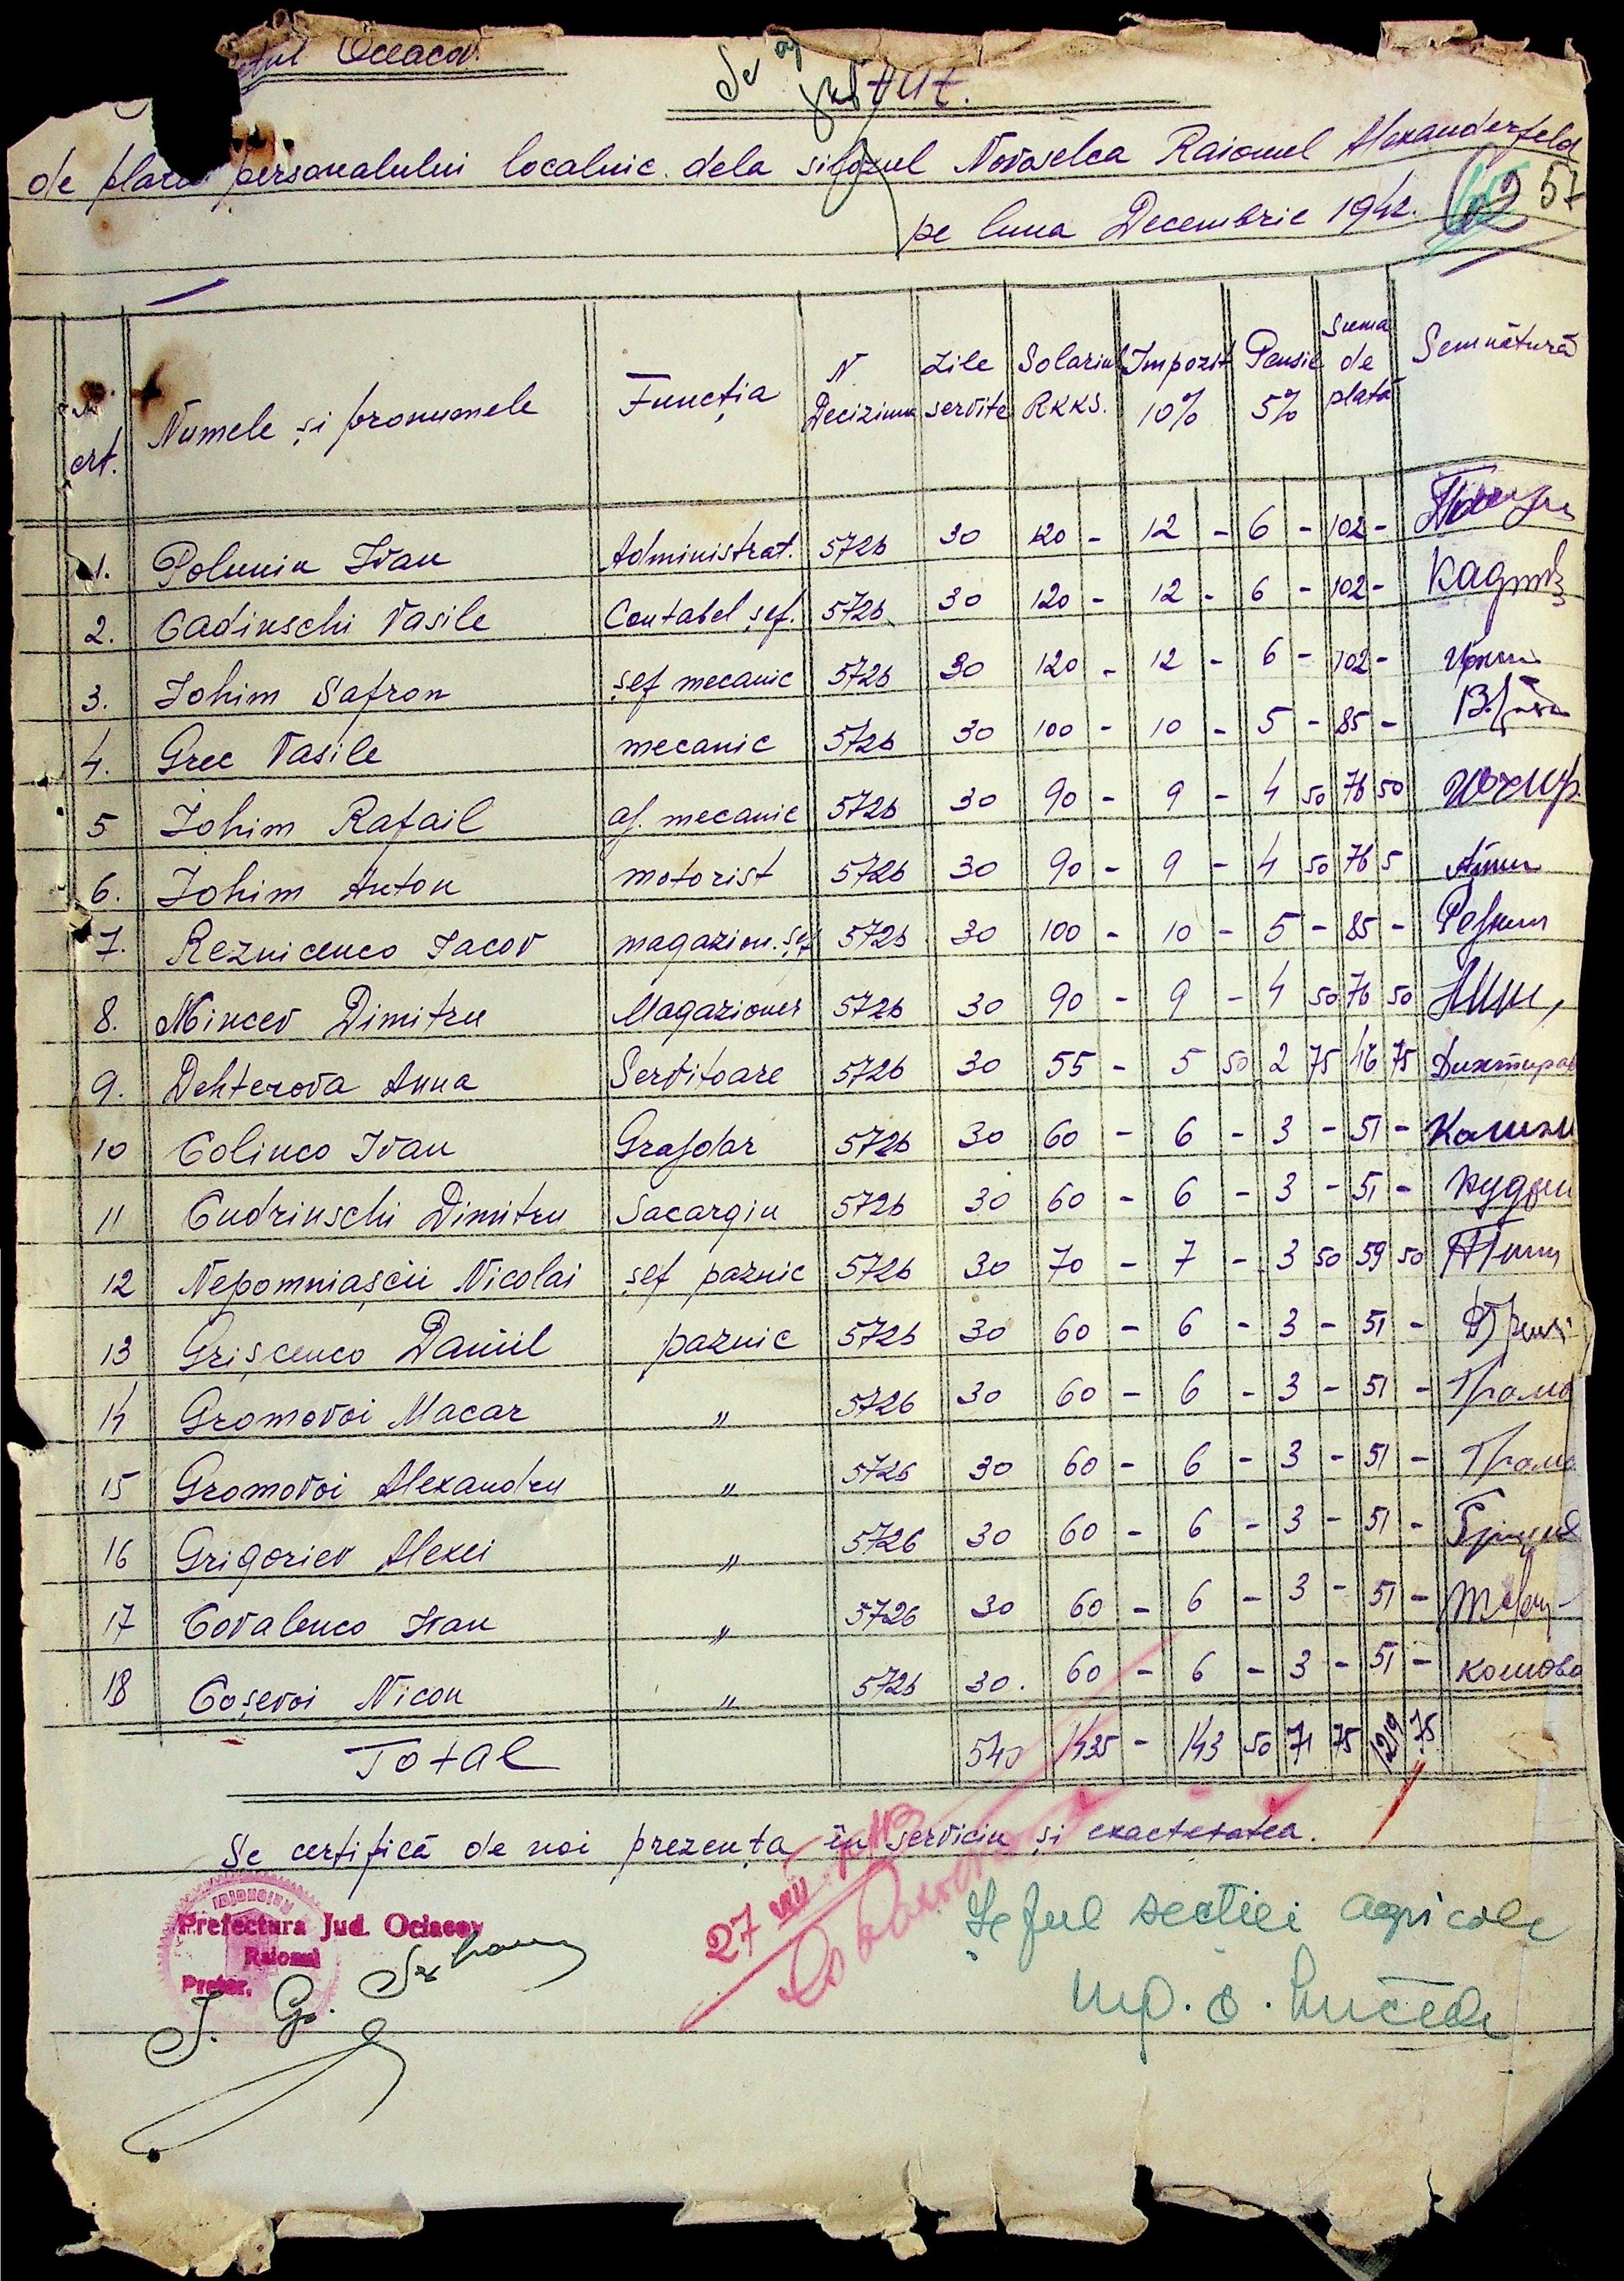 Oceacov.
Stat.
de plata personalului localnic dela silozul Novoselca Raionul Alexanderfeld
pe luna Decembrie 1942.
57
crt. Numele și pronumele Funcția N Deciziuna Zile servite Solariul RKKS. Impozit 10% Pensie 5% Suma de plată Semnătură
1. Polunin Ivan Administrat. 5726 30 120 - 12 - 6 - 102 -
2. Cadinschi Vasile Contabel șef. 5726 30 120 - 12 - 6 - 102 -
3. Iohim Safron șef mecanic 5726 30 120 - 12 - 6 - 102 -
4. Grec Vasile mecanic 5726 30 100 - 10 - 5 - 85 -
5 Iohim Rafail aj. mecanic 5726 30 90 - 9 - 4 50 76 50
6. Iohim Anton motorist 5726 30 90 - 9 - 4 50 76 5
7. Reznicenco Iacov magazion. șef 5726 30 100 - 10 - 5 - 85 -
8. Mincev Dimitru Magazioner 5726 30 90 - 9 - 4 50 76 50
9. Dehterova Anna Servitoare 5726 30 55 - 5 50 2 75 46 75
10 Colinco Ivan Grajdar 5726 30 60 - 6 - 3 - 51 -
11 Cudrinschi Dimitru Sacargiu 5726 30 60 - 6 - 3 - 51 -
12 Nepomniașcii Nicolai șef paznic 5726 30 70 - 7 - 3 50 59 50
13 Grișcenco Daniil paznic 5726 30 60 - 6 - 3 - 51 -
14 Gromovoi Macar " 5726 30 60 - 6 - 3 - 51 -
15 Gromovoi Alexandru " 5726 30 60 - 6 - 3 - 51 -
16 Grigoriev Alexei " 5726 30 60 - 6 - 3 - 51 -
17 Covalenco Ivan " 5726 30 60 - 6 - 3 - 51 -
18 Coșevoi Nicon " 5726 30. 60 - 6 - 3 - 51 -
Total 540 1435 - 143 50 71 75 1219 75
Se certifică de noi prezența în serviciu și exactetatea.
Prefectura Jud. Ociacov
Raionul
Pretor,
27 VIII
Șeful secției agricole